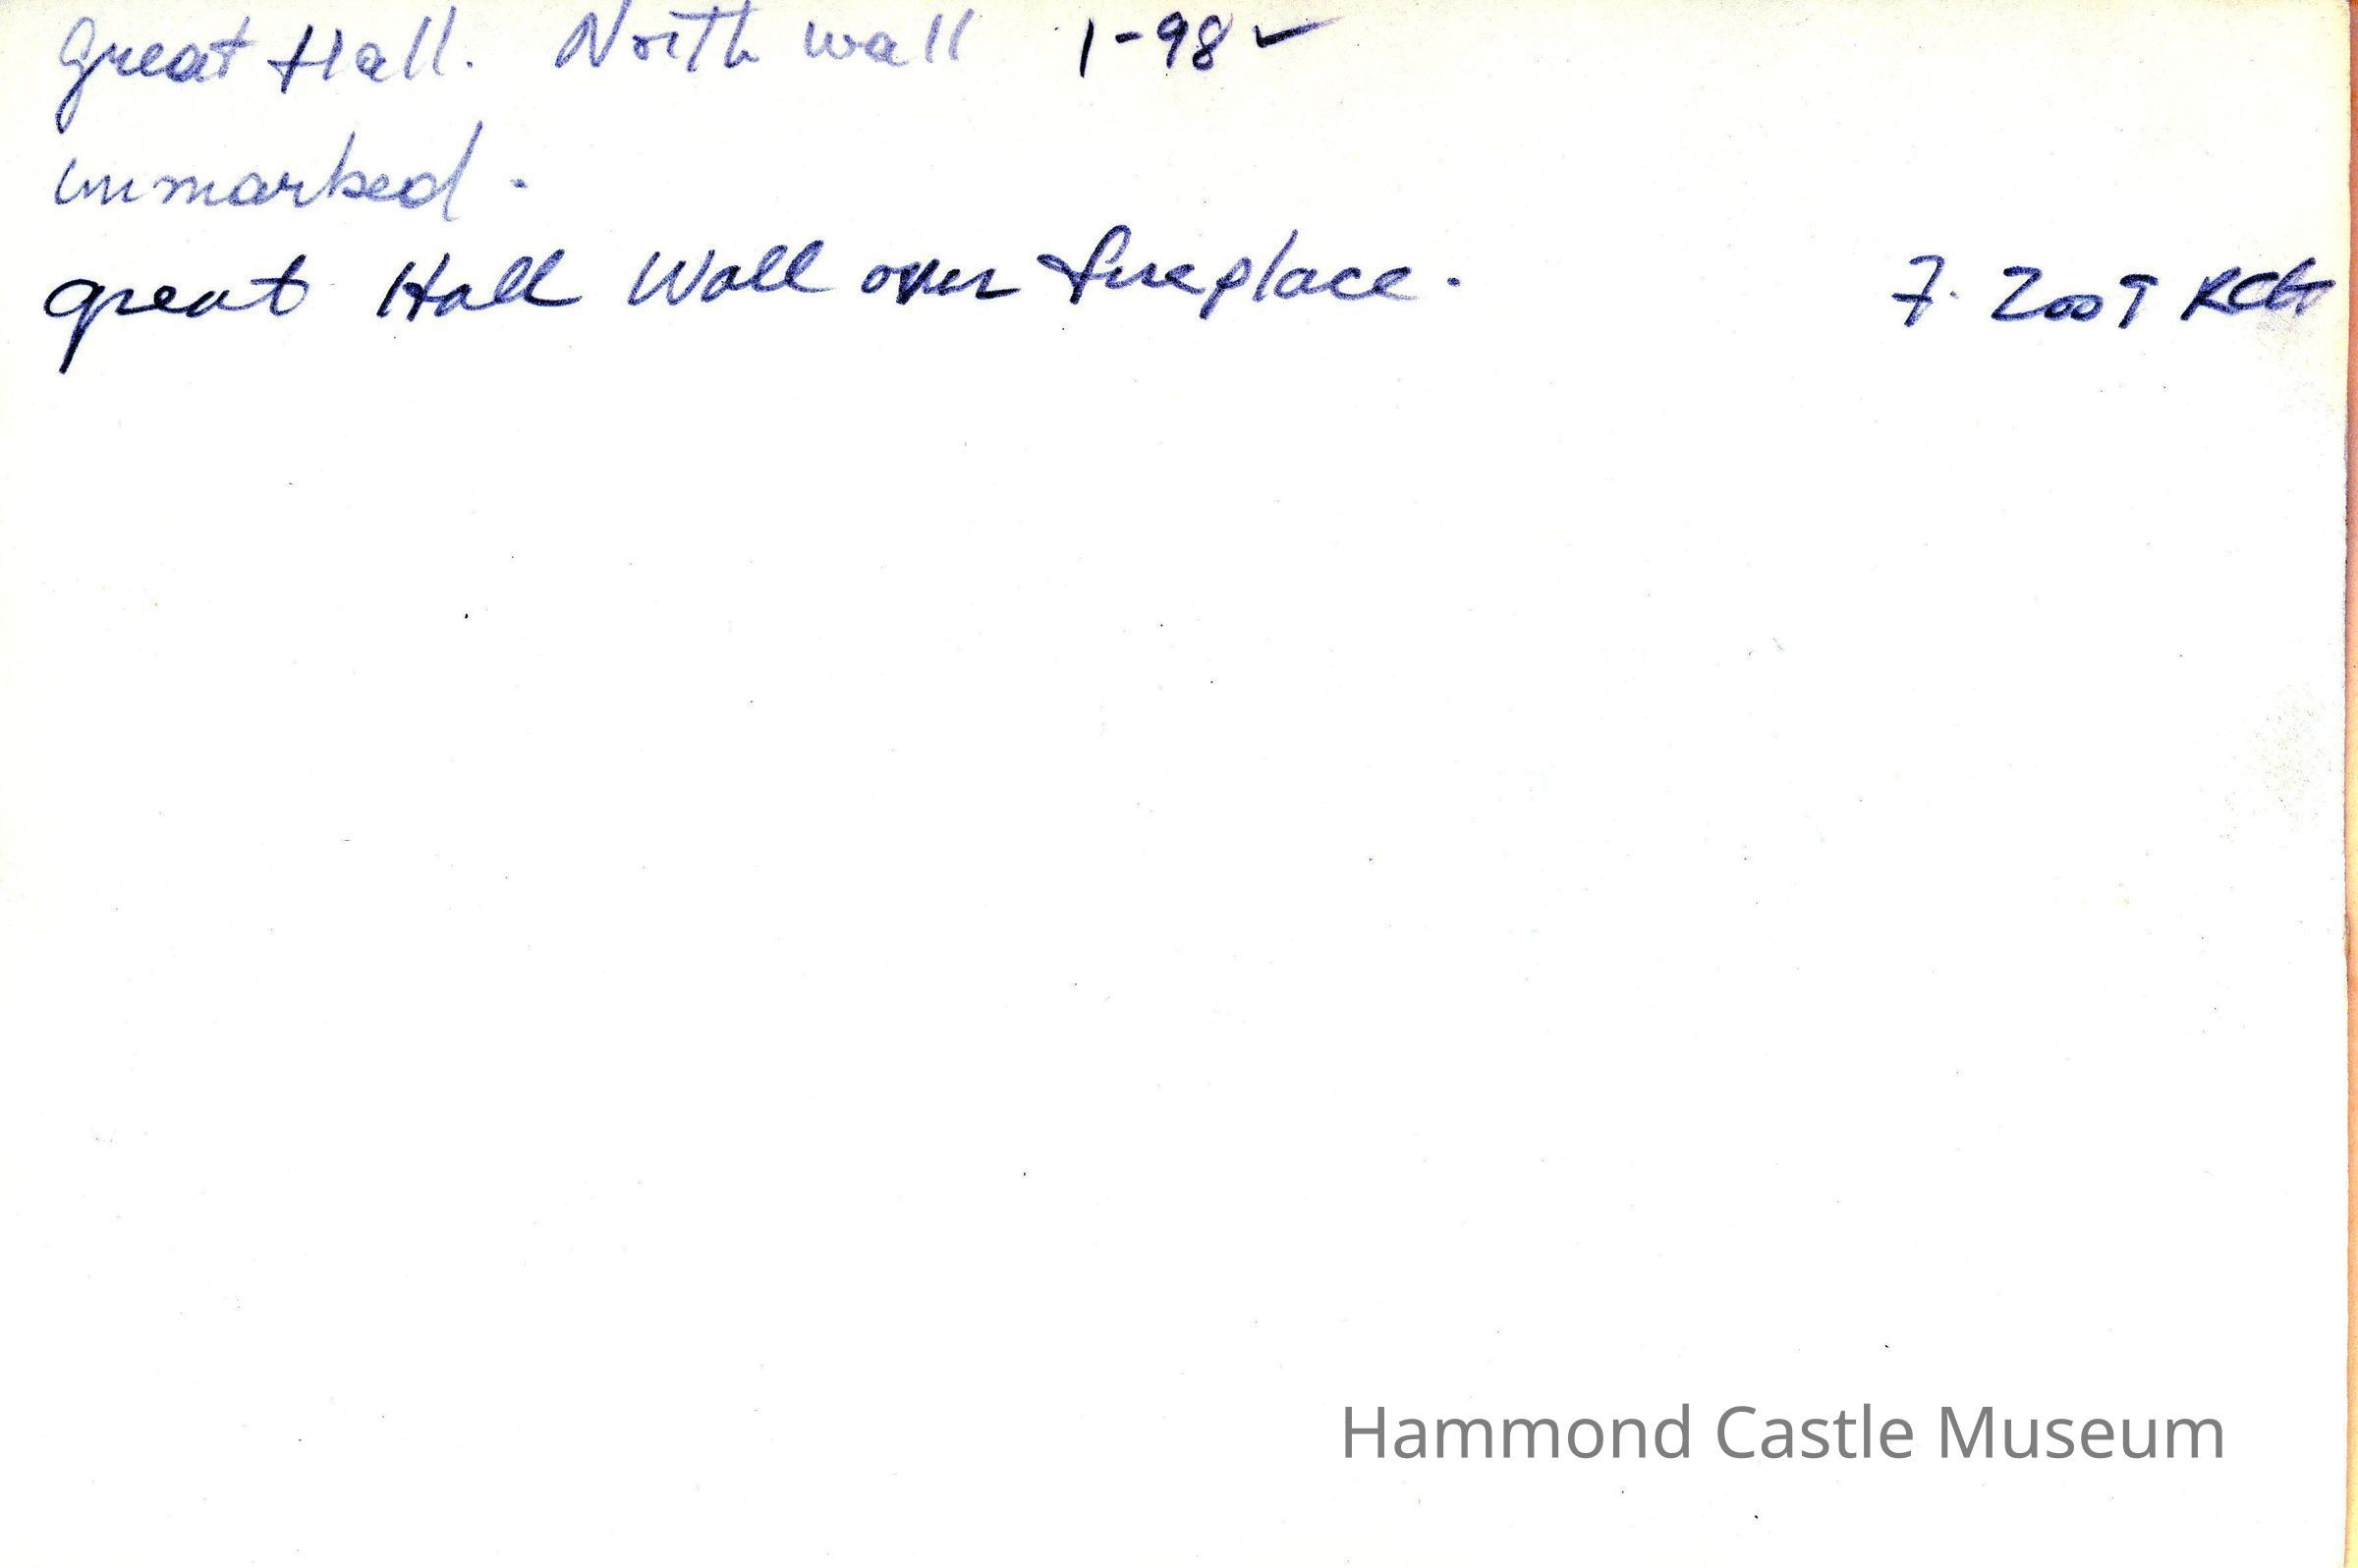 Great Hall. North wall 1-98 ✓
unmarked.
great Hall Wall over fireplace. 7. 2009
Hammond Castle Museum